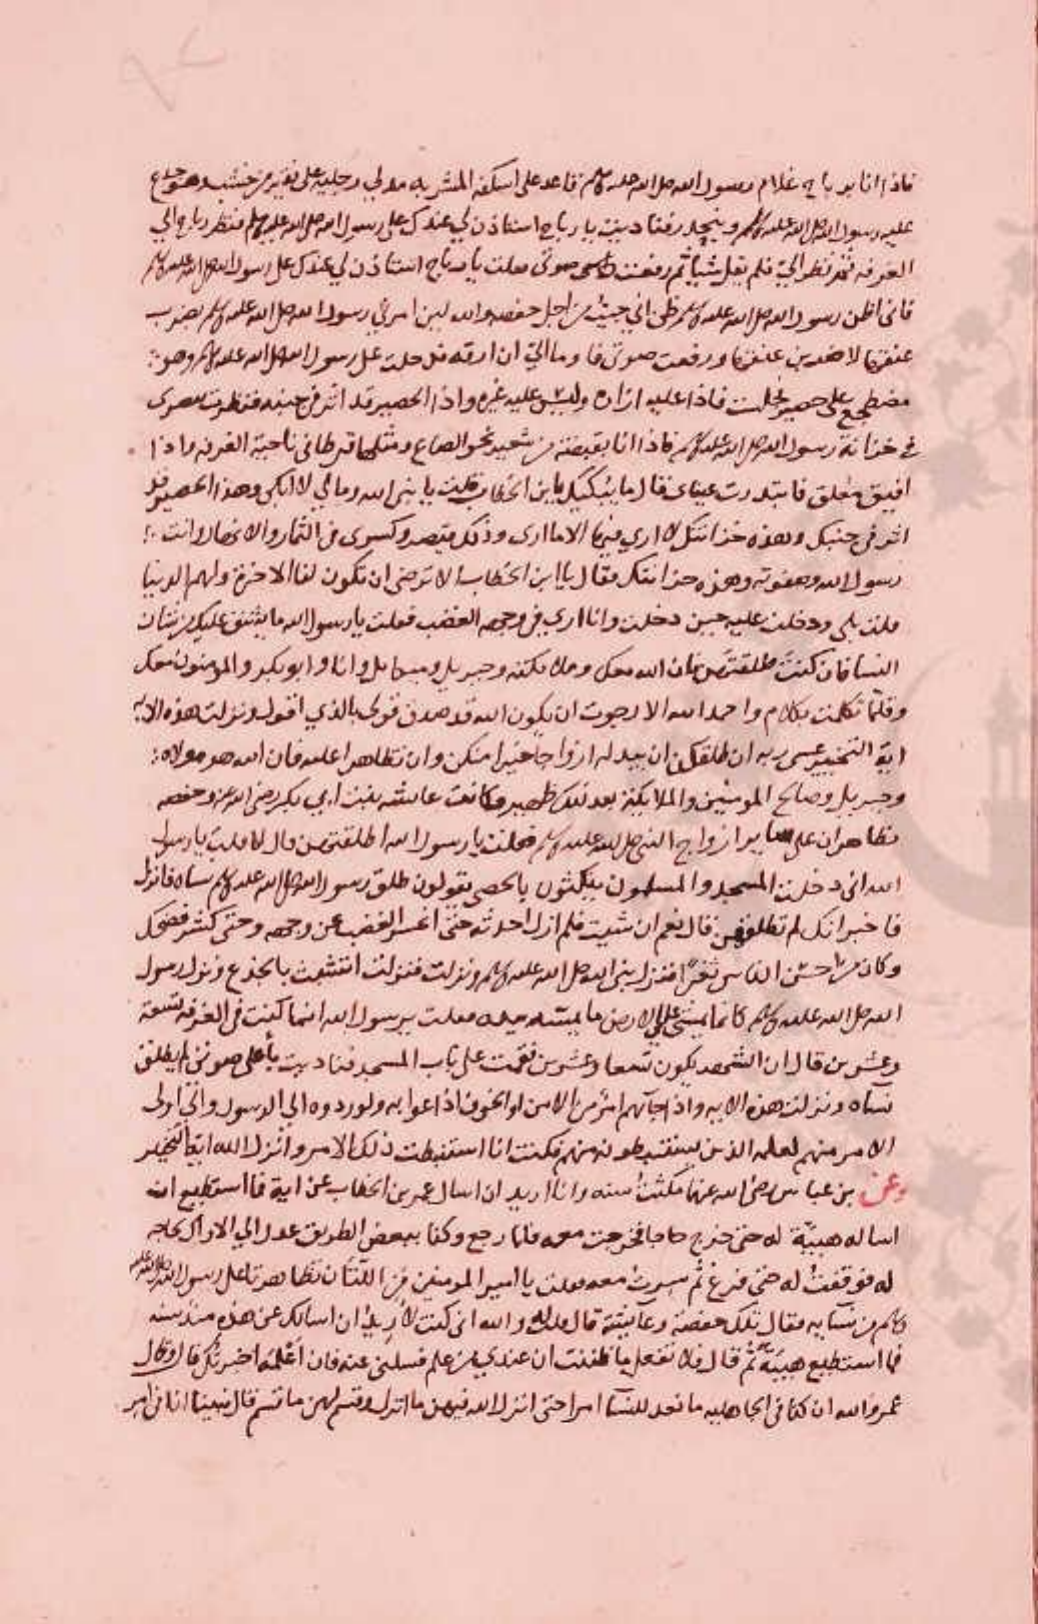 فاذا انا برباح غلام رسول الله صلى الله عليه وسلم قاعد على اسكفة المشربه مدلي رجليه على نقير من خشب وهو جذع
عليه رسول الله صلى الله عليه وسلم وينحدر فناديت يا رباح استاذن لي عندك على رسول الله صلى الله عليه وسلم فنظر رباح الي
الغرفه ثم نظر اليّ فلم يقل شيأ ثم رفعت صوتى فقلت يا رباح استاذن لي عندك على رسول الله صلى الله عليه وسلم
فانى اظن رسول الله صلى الله عليه وسلم ظن اني جيت من اجل حفصه والله لين امرني رسول الله صلى الله عليه وسلم بضرب
عنقها لاضربن عنقها ورفعت صوتى فاوما اليّ ان ارقه فدخلت على رسول الله صلى الله عليه وسلم وهو
مضطجع على حصير فجلست فاذا عليه ازاره وليس عليه غيره واذا الحصير قد اثر في جنبه فنظرت ببصرى
في خزانة رسول الله صلى الله عليه وسلم فاذا انا بقبضة من شعير نحو الصاع ومثلها قرظا في ناحية الغرفه واذا
افيق معلق فابتدرت عيناى فقال ما يبكيك يا بن الخطاب قلت يا نبى الله ومالي لا ابكى وهذا الحصير قد
اثر في جنبك وهذه خزانتك لا اري فيها الا ما ارى وذلك قيصر وكسرى فى الثمار والانهار وانت
رسول الله وصفوته وهذه خزانتك فقال يا ابن الخطاب الا ترضى ان تكون لنا الاخرة ولهم الدنيا
قلت بلى ودخلت عليه حين دخلت وانا اري فى وجهه الغضب فقلت يا رسول الله ما يشق عليك من شان
النسا فان كنت طلقتهن فان الله معك وملايكته وجبريل وميكايل وانا وابو بكر والمومنون معك
وقلّما تكلمت بكلام واحمد الله الا رجوت ان يكون الله قد صدق قولى بالذي اقول ونزلت هذه الايه
اية التخيير عسى ربه ان طلقكن ان يبدله ازواجا خيرا منكن وان تظاهرا عليه فان الله هو مولاه
وجبريل وصالح المومنين والملايكة بعد ذلك ظهير وكانت عايشه بنت ابي بكر رضى الله عنه وحفصه
تظاهران على ساير ازواج النبى صلى الله عليه وسلم فقلت يا رسول الله اطلقتهن قال لا قلت يا رسول
الله انى دخلت المسجد والمسلمون ينكثون بالحصى يقولون طلق رسول الله صلى الله عليه وسلم نساه فانزل
فاخبر انك لم تطلقهن قال نعم ان شيت فلم ازل احدثه حتى انحسر الغضب عن وجهه وحتى كشر فضحك
وكان من احسن الناس ثغرا فنزل نبى الله صلى الله عليه وسلم ونزلت فنزلت اتشبث بالجذع ونزل رسول
الله صلى الله عليه وسلم كانما يمشى على الارض ما يمسه بيده فقلت يرسول الله انما كنت فى الغرفه تسعة
وعشرين قال ان الشهر يكون تسعا وعشرين فقمت على باب المسجد فناديت بأعلى صوتى لم يطلق
نسآه ونزلت هذه الايه واذا جآهم امر من الامن او الخوف اذاعوا به ولو ردوه الي الرسول والى اولى
الامر منهم لعلمه الذين يستنبطونه منهم فكنت انا استنبطت ذلك الامر وانزل الله اية التخيير
وعن بن عباس رضى الله عنهما مكثت سنه وانا اريد ان اسال عمر بن الخطاب عن اية فما استطيع ان
اساله هيبةً له حتى خرج حاجا فخرجت معه فلما رجع وكنا ببعض الطريق عدل الي الاراك لحاجه
له فوقفت له حتى فرغ ثم سرت معه فقلت يا امير المومنين من اللتان تظاهرتا على رسول الله صلى الله عليه
وسلم من نسايه فقال تلك حفصة وعايشة قال فقلت والله انى كنت لأريد ان اسالك عن هذه منذ سنه
فما استطيع هيبة ثم قال فلا تفعل ما ظننت ان عندي من علم فسلنى عنه فان اعلمه اخبرتك قال وقال
عمر والله ان كنا فى الجاهليه ما نعد للنسآ امرا حتى انزل الله فيهن ما انزل وقسم لهن ما قسم قال فبينا انا فى امر